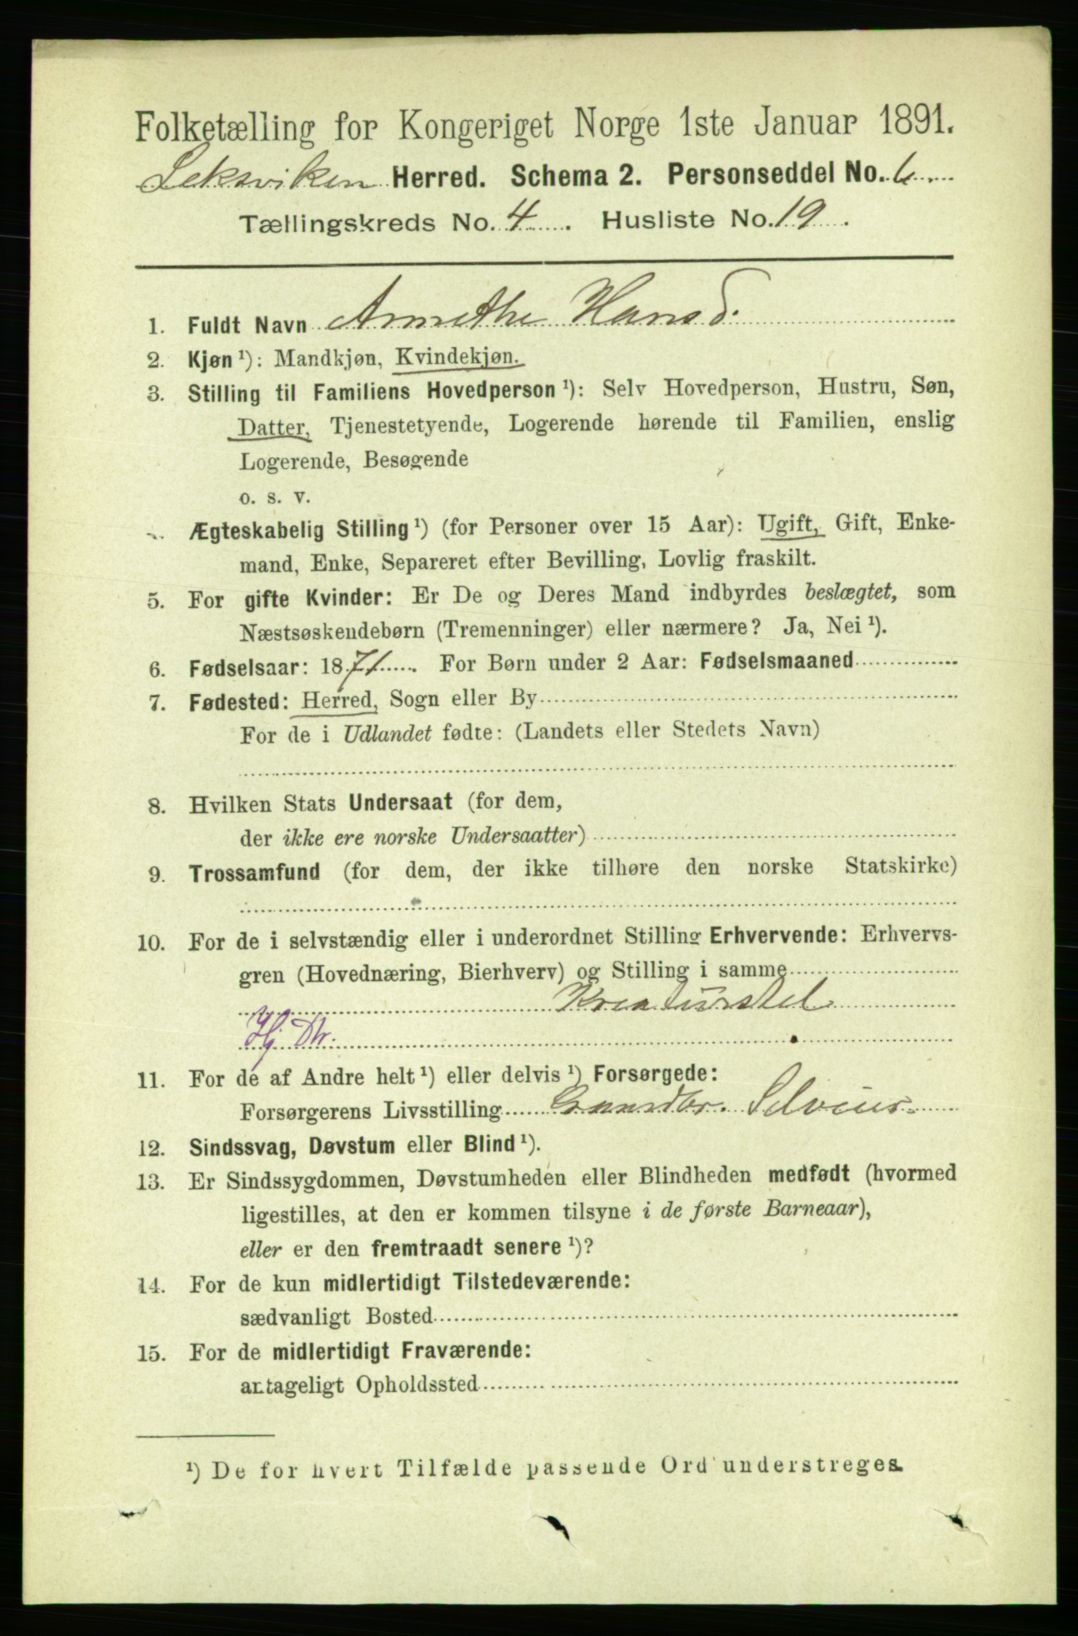 Folketælling for Kongeriget Norge 1ste Januar 1891.
Leksviken Herred. Schema 2. Personseddel No. 6.
Tællingskreds No. 4. Husliste No. 19.
1. Fuldt Navn Annethe Hansd.
2. Kjøn ¹): Mandkjøn, Kvindekjøn.
3. Stilling til Familiens Hovedperson ¹): Selv Hovedperson, Hustru, Søn,
Datter, Tjenestetyende, Logerende hørende til Familien, enslig
Logerende, Besøgende
o. s. v.
Ægteskabelig Stilling ¹) (for Personer over 15 Aar): Ugift, Gift, Enke-
mand, Enke, Separeret efter Bevilling, Lovlig fraskilt.
5. For gifte Kvinder: Er De og Deres Mand indbyrdes beslægtet, som
Næstsøskendebørn (Tremenninger) eller nærmere? Ja, Nei ¹).
6. Fødselsaar: 1871. For Børn under 2 Aar: Fødselsmaaned
7. Fødested: Herred, Sogn eller By
For de i Udlandet fødte: (Landets eller Stedets Navn)
8. Hvilken Stats Undersaat (for dem,
der ikke ere norske Undersaatter)
9. Trossamfund (for dem, der ikke tilhøre den norske Statskirke)
10. For de i selvstændig eller i underordnet Stilling Erhvervende: Erhvervs-
gren (Hovednæring, Bierhverv) og Stilling i samme
Kreaturstel
Hj. Dtr.
11. For de af Andre helt ¹) eller delvis ¹) Forsørgede:
Forsørgerens Livsstilling Gaardbr. Selveier
12. Sindssvag, Døvstum eller Blind ¹).
13. Er Sindssygdommen, Døvstumheden eller Blindheden medfødt (hvormed
ligestilles, at den er kommen tilsyne i de første Barneaar),
eller er den fremtraadt senere ¹)?
14. For de kun midlertidigt Tilstedeværende:
sædvanligt Bosted
15. For de midlertidigt Fraværende:
antageligt Opholdssted
¹) De for hvert Tilfælde passende Ord understreges.